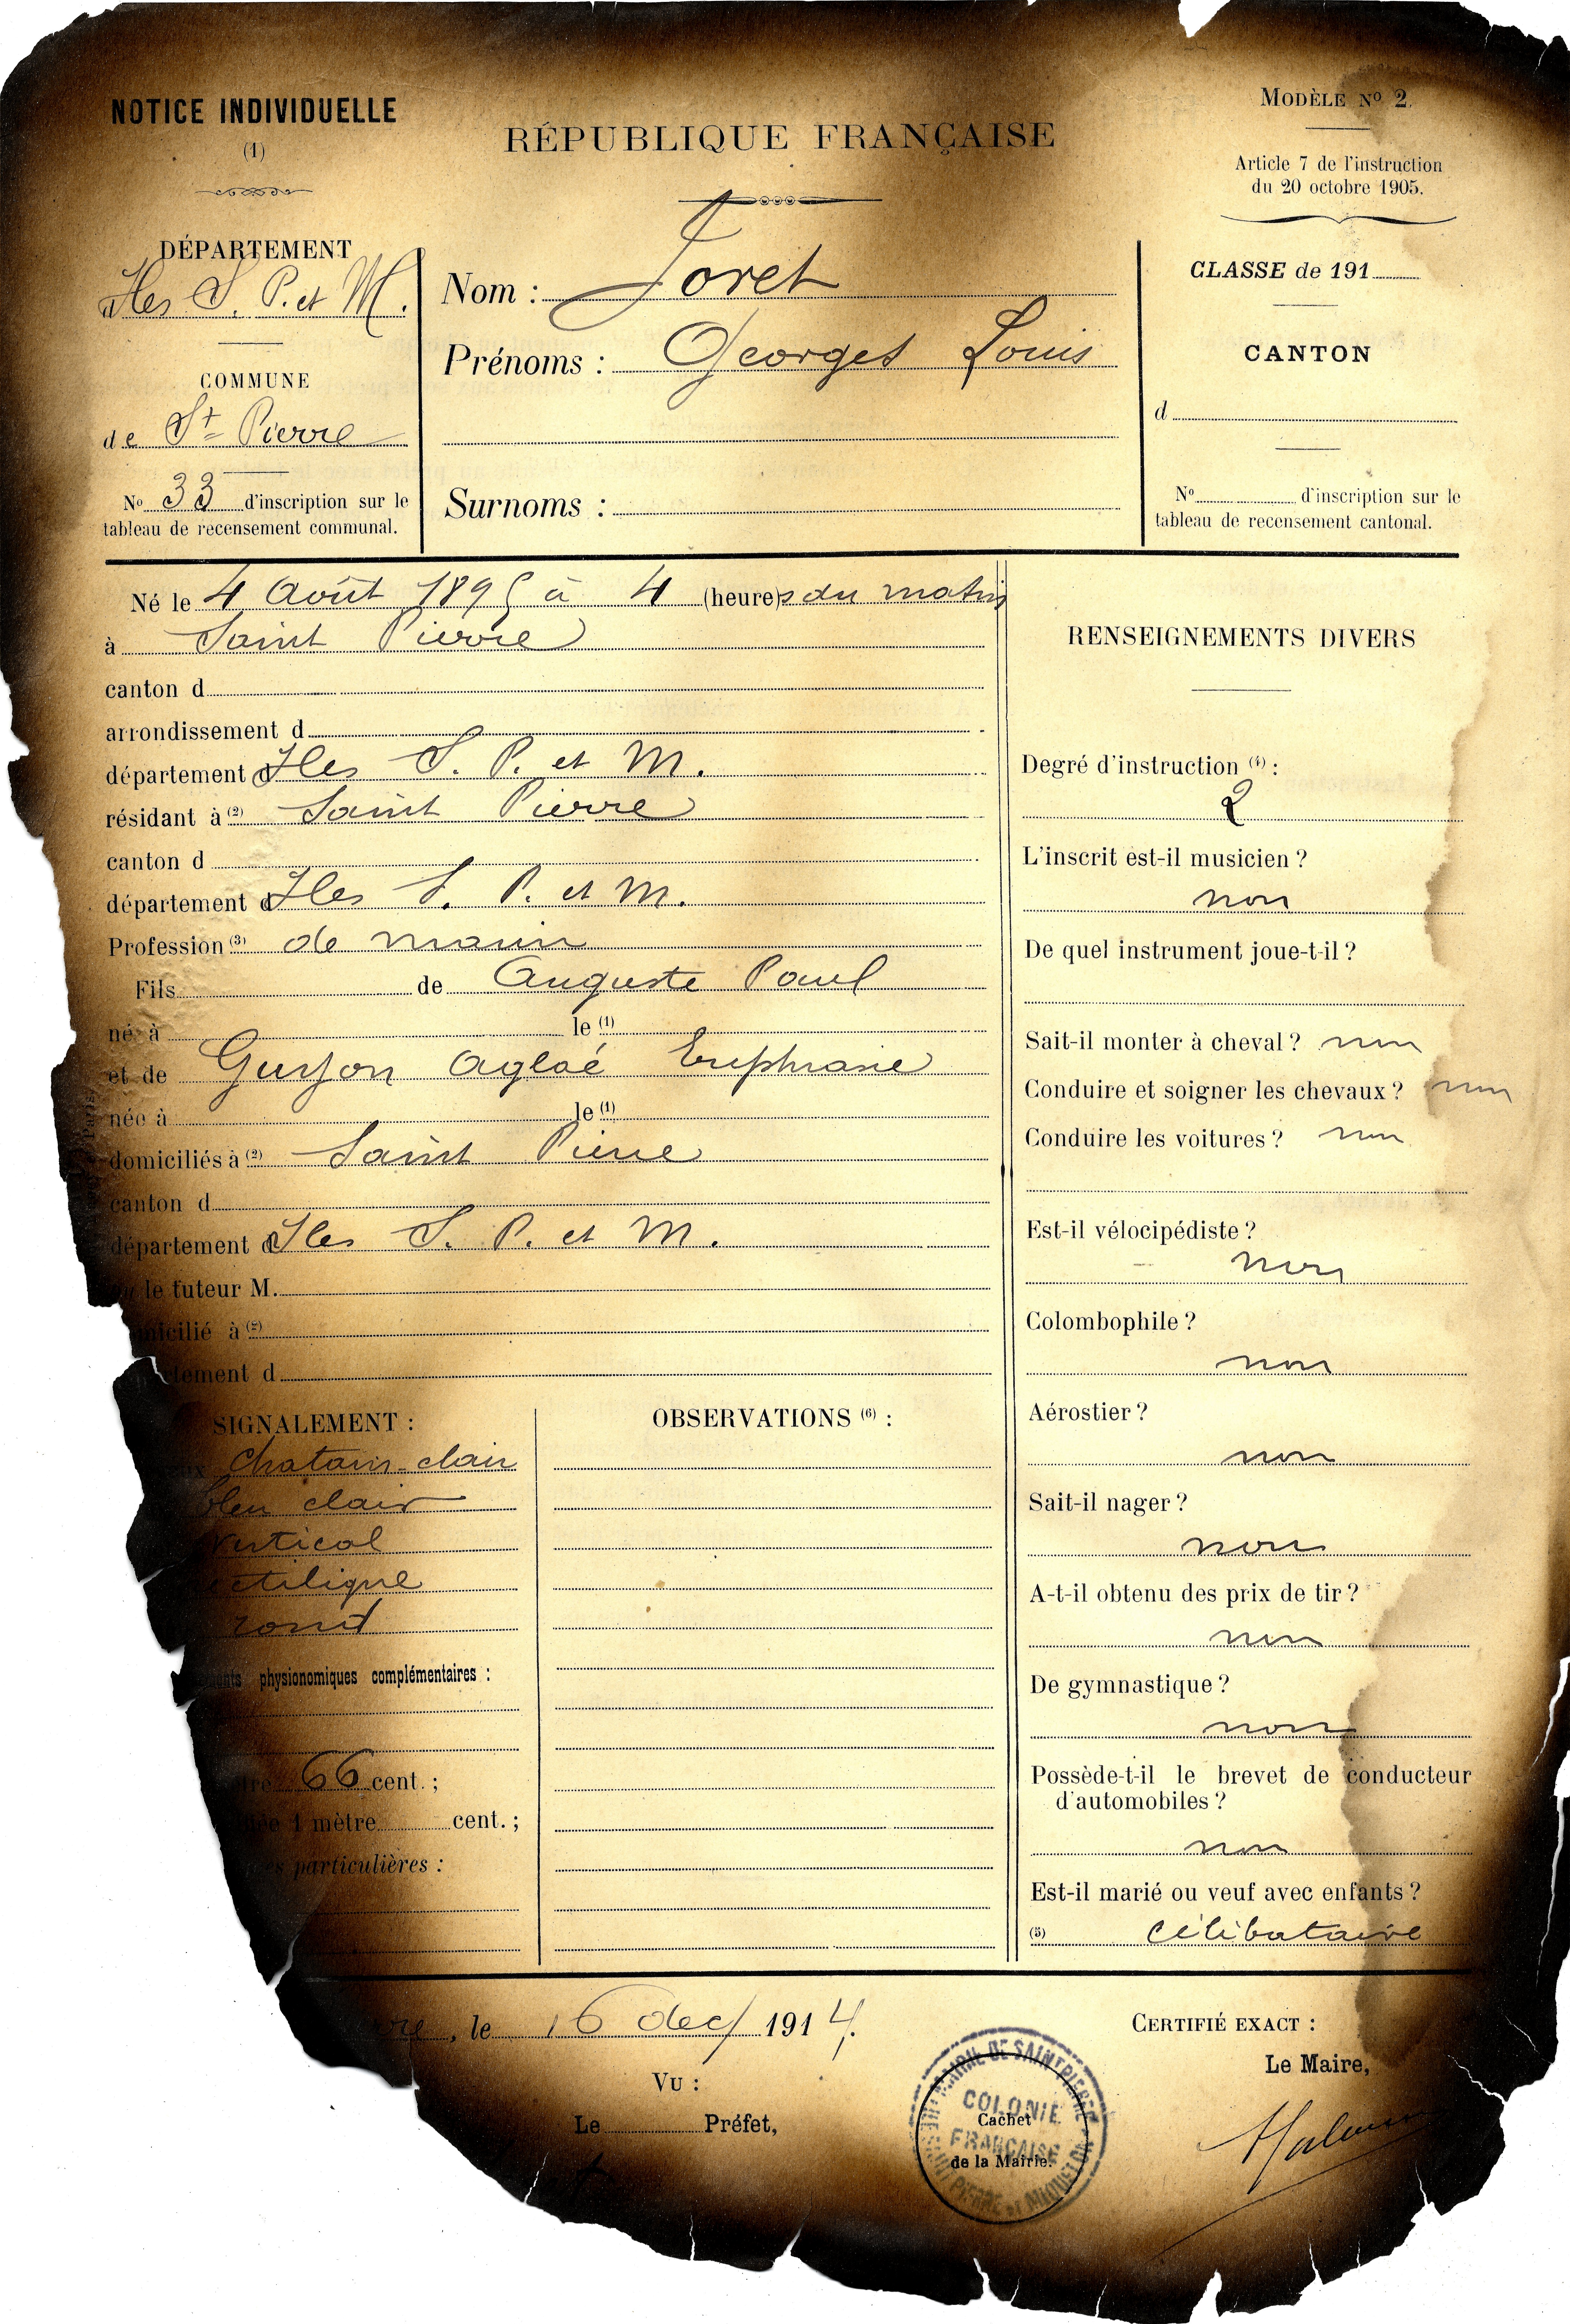 NOTICE INDIVIDUELLE
(1)
RÉPUBLIQUE FRANÇAISE
MODÈLE No 2.
Article 7 de l'instruction
du 20 octobre 1905.
DÉPARTEMENT
Iles S. P. et M.
COMMUNE
de St Pierre
No 33 d'inscription sur le
tableau de recensement communal.
Nom : Joret
Prénoms : Georges Louis
Surnoms :
CLASSE de 191
CANTON
d
No d'inscription sur le
tableau de recensement cantonal.
Né le 4 Août 1895 à 4 (heure)s du matin
à Saint Pierre
canton d
arrondissement d
département d Iles S. P. et M.
résidant à (2) Saint Pierre
canton d
département d Iles S. P. et M.
Profession (3) de marin
Fils de Auguste Paul
né à le (1)
et de Guyon Aglaé Euphrasie
née à le (1)
domiciliés à (2) Saint Pierre
canton d
département d Iles S. P. et M.
le tuteur M.
micilié à (2)
tement d
SIGNALEMENT :
Chatain-clair
bleu clair
vertical
ctiligne
rond
physionomiques complémentaires :
66 cent. ;
1 mètre cent. ;
particulières :
OBSERVATIONS (6) :
RENSEIGNEMENTS DIVERS
Degré d'instruction (4) :
2
L'inscrit est-il musicien ?
non
De quel instrument joue-t-il ?
Sait-il monter à cheval ? non
Conduire et soigner les chevaux ? non
Conduire les voitures ? non
Est-il vélocipédiste ?
non
Colombophile ?
non
Aérostier ?
non
Sait-il nager ?
non
A-t-il obtenu des prix de tir ?
non
De gymnastique ?
non
Possède-t-il le brevet de conducteur
d'automobiles ?
non
Est-il marié ou veuf avec enfants ?
(5) célibataire
, le 16 dec/ 1914.
VU :
Le Préfet,
MAIRIE DE SAINT PIERRE
COLONIE
FRANÇAISE
PIERRE et MIQUELON
Cachet
de la Mairie.
CERTIFIÉ EXACT :
Le Maire,